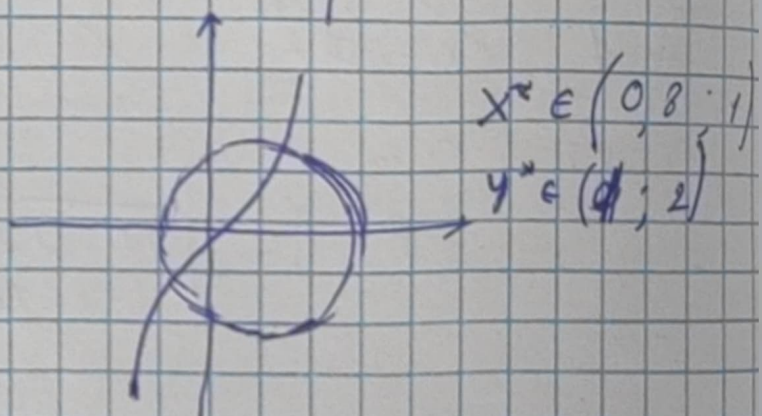 x* ∈ (0,8 ; 1)
y* ∈ (1 ; 2)